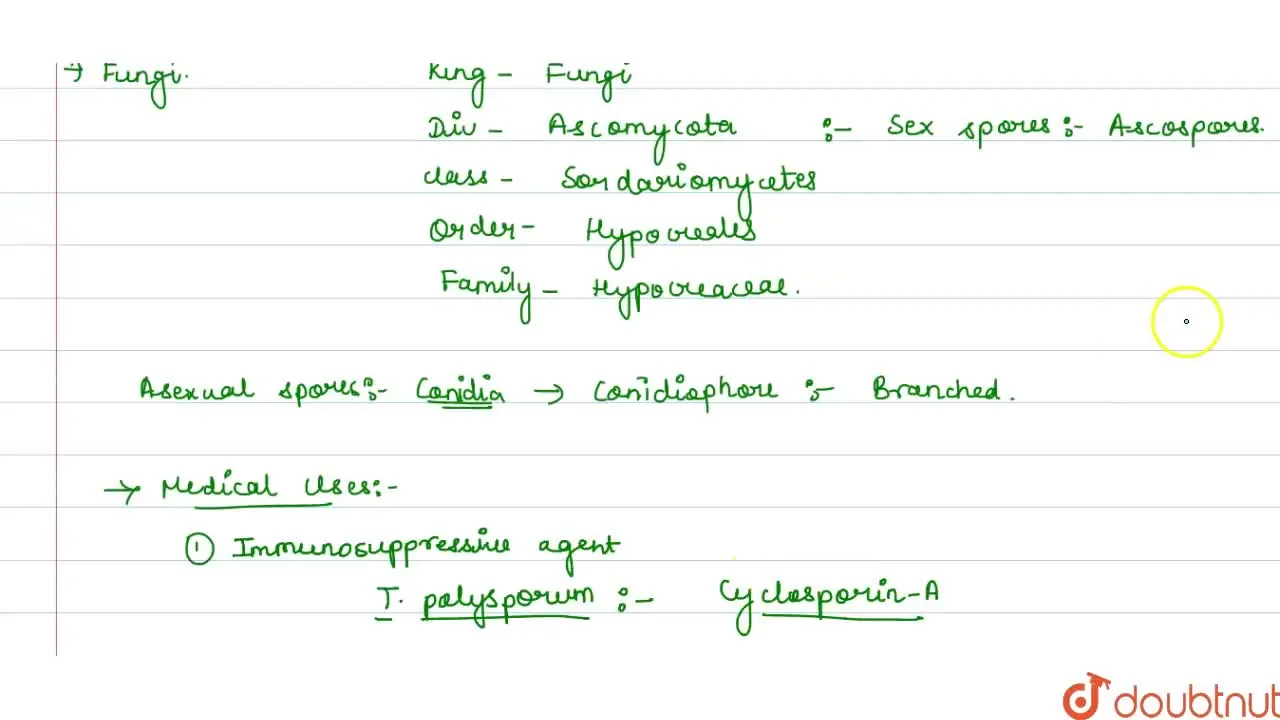 → Fungi. King - Fungi
Div - Ascomycota :- Sex spores :- Ascospores.
class - Sordariomycetes
Order - Hypocreales
Family - Hypocreaceae.
Asexual spores :- Conidia → Conidiophore :- Branched.
→ Medical Uses :-
① Immunosuppressive agent
T. polysporum :- Cyclosporin-A
doubtnut